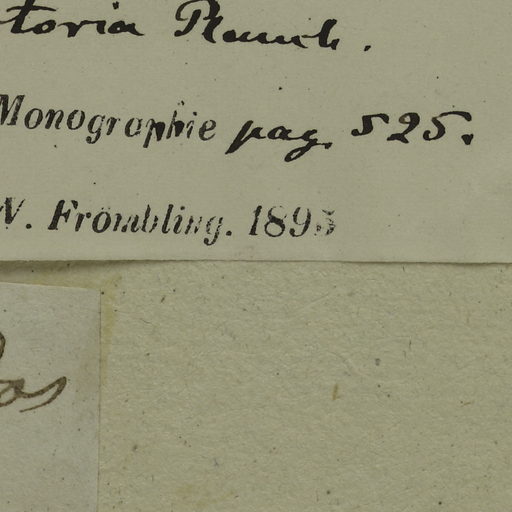 toria Planch.
Monographie pag. 525.
W. Frömbling. 1895
as